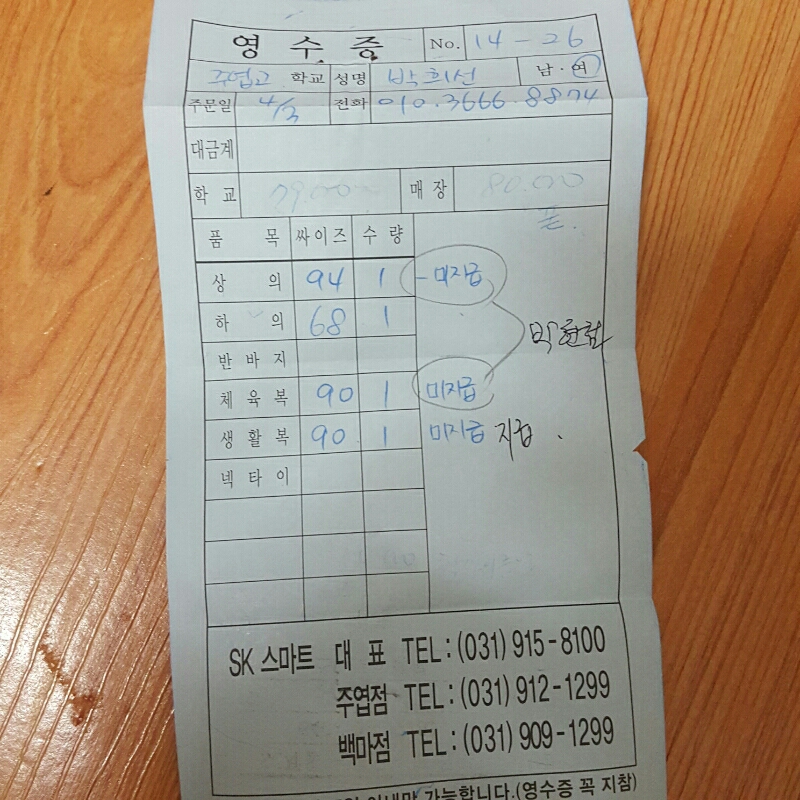 영 수 증 No. 14-26
주엽고 학교 성명 박희선 남·여
주문일 4/3 전화 010.3666.8874
대금계
학 교 79.000 매 장 80.000
품 목 싸이즈 수 량
상 의 94 1 -미지급
하 의 68 1
반 바 지
체 육 복 90 1 미지급
생 활 복 90 1 미지급 지급.
넥 타 이
SK 스마트 대 표 TEL : (031) 915-8100
주엽점 TEL : (031) 912-1299
백마점 TEL : (031) 909-1299
가능합니다.(영수증 꼭 지참)